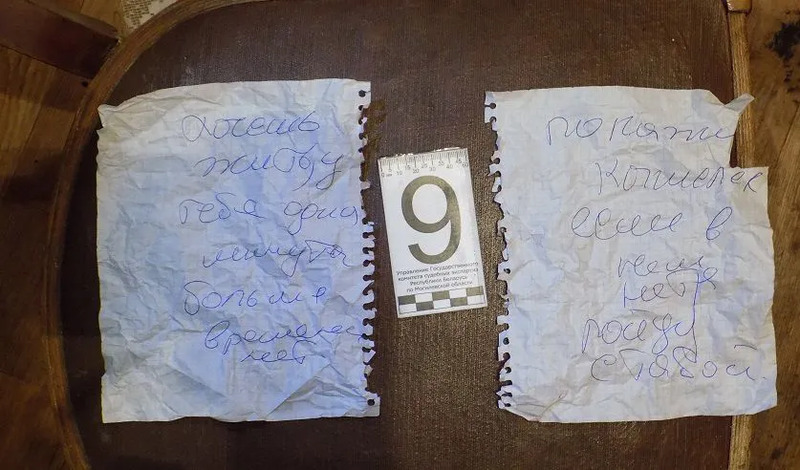 хочешь
жить у
тебя одна
минуты
больше
времени
нет
9
Управление Государственного
комитета судебных экспертиз
Республики Беларусь
по Могилевской области
покажи
кошелек
если в
нем
нета
пойду
с тобой.